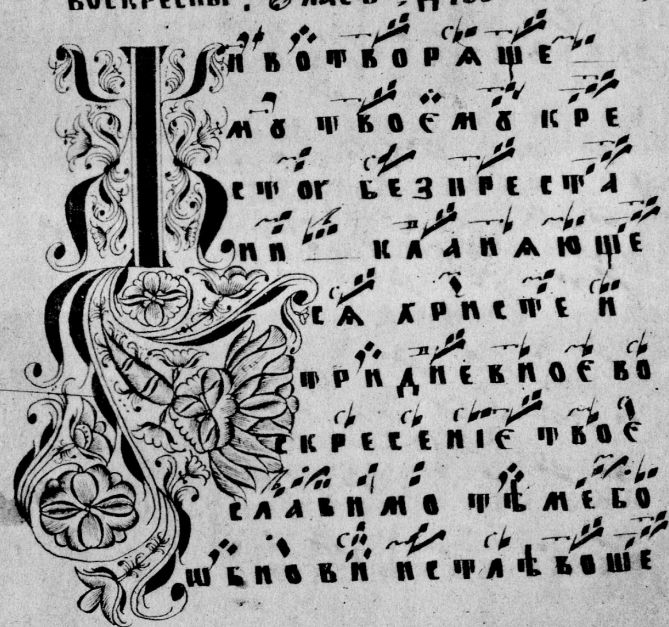 ивотворѧще
мꙋ твоємꙋ кре
стоу безпреста
ни кланѧюще
сѧ христе и
тридневноєво
скресениє твоє
славимо тѣмебо
ѡбнови истлѣвоше